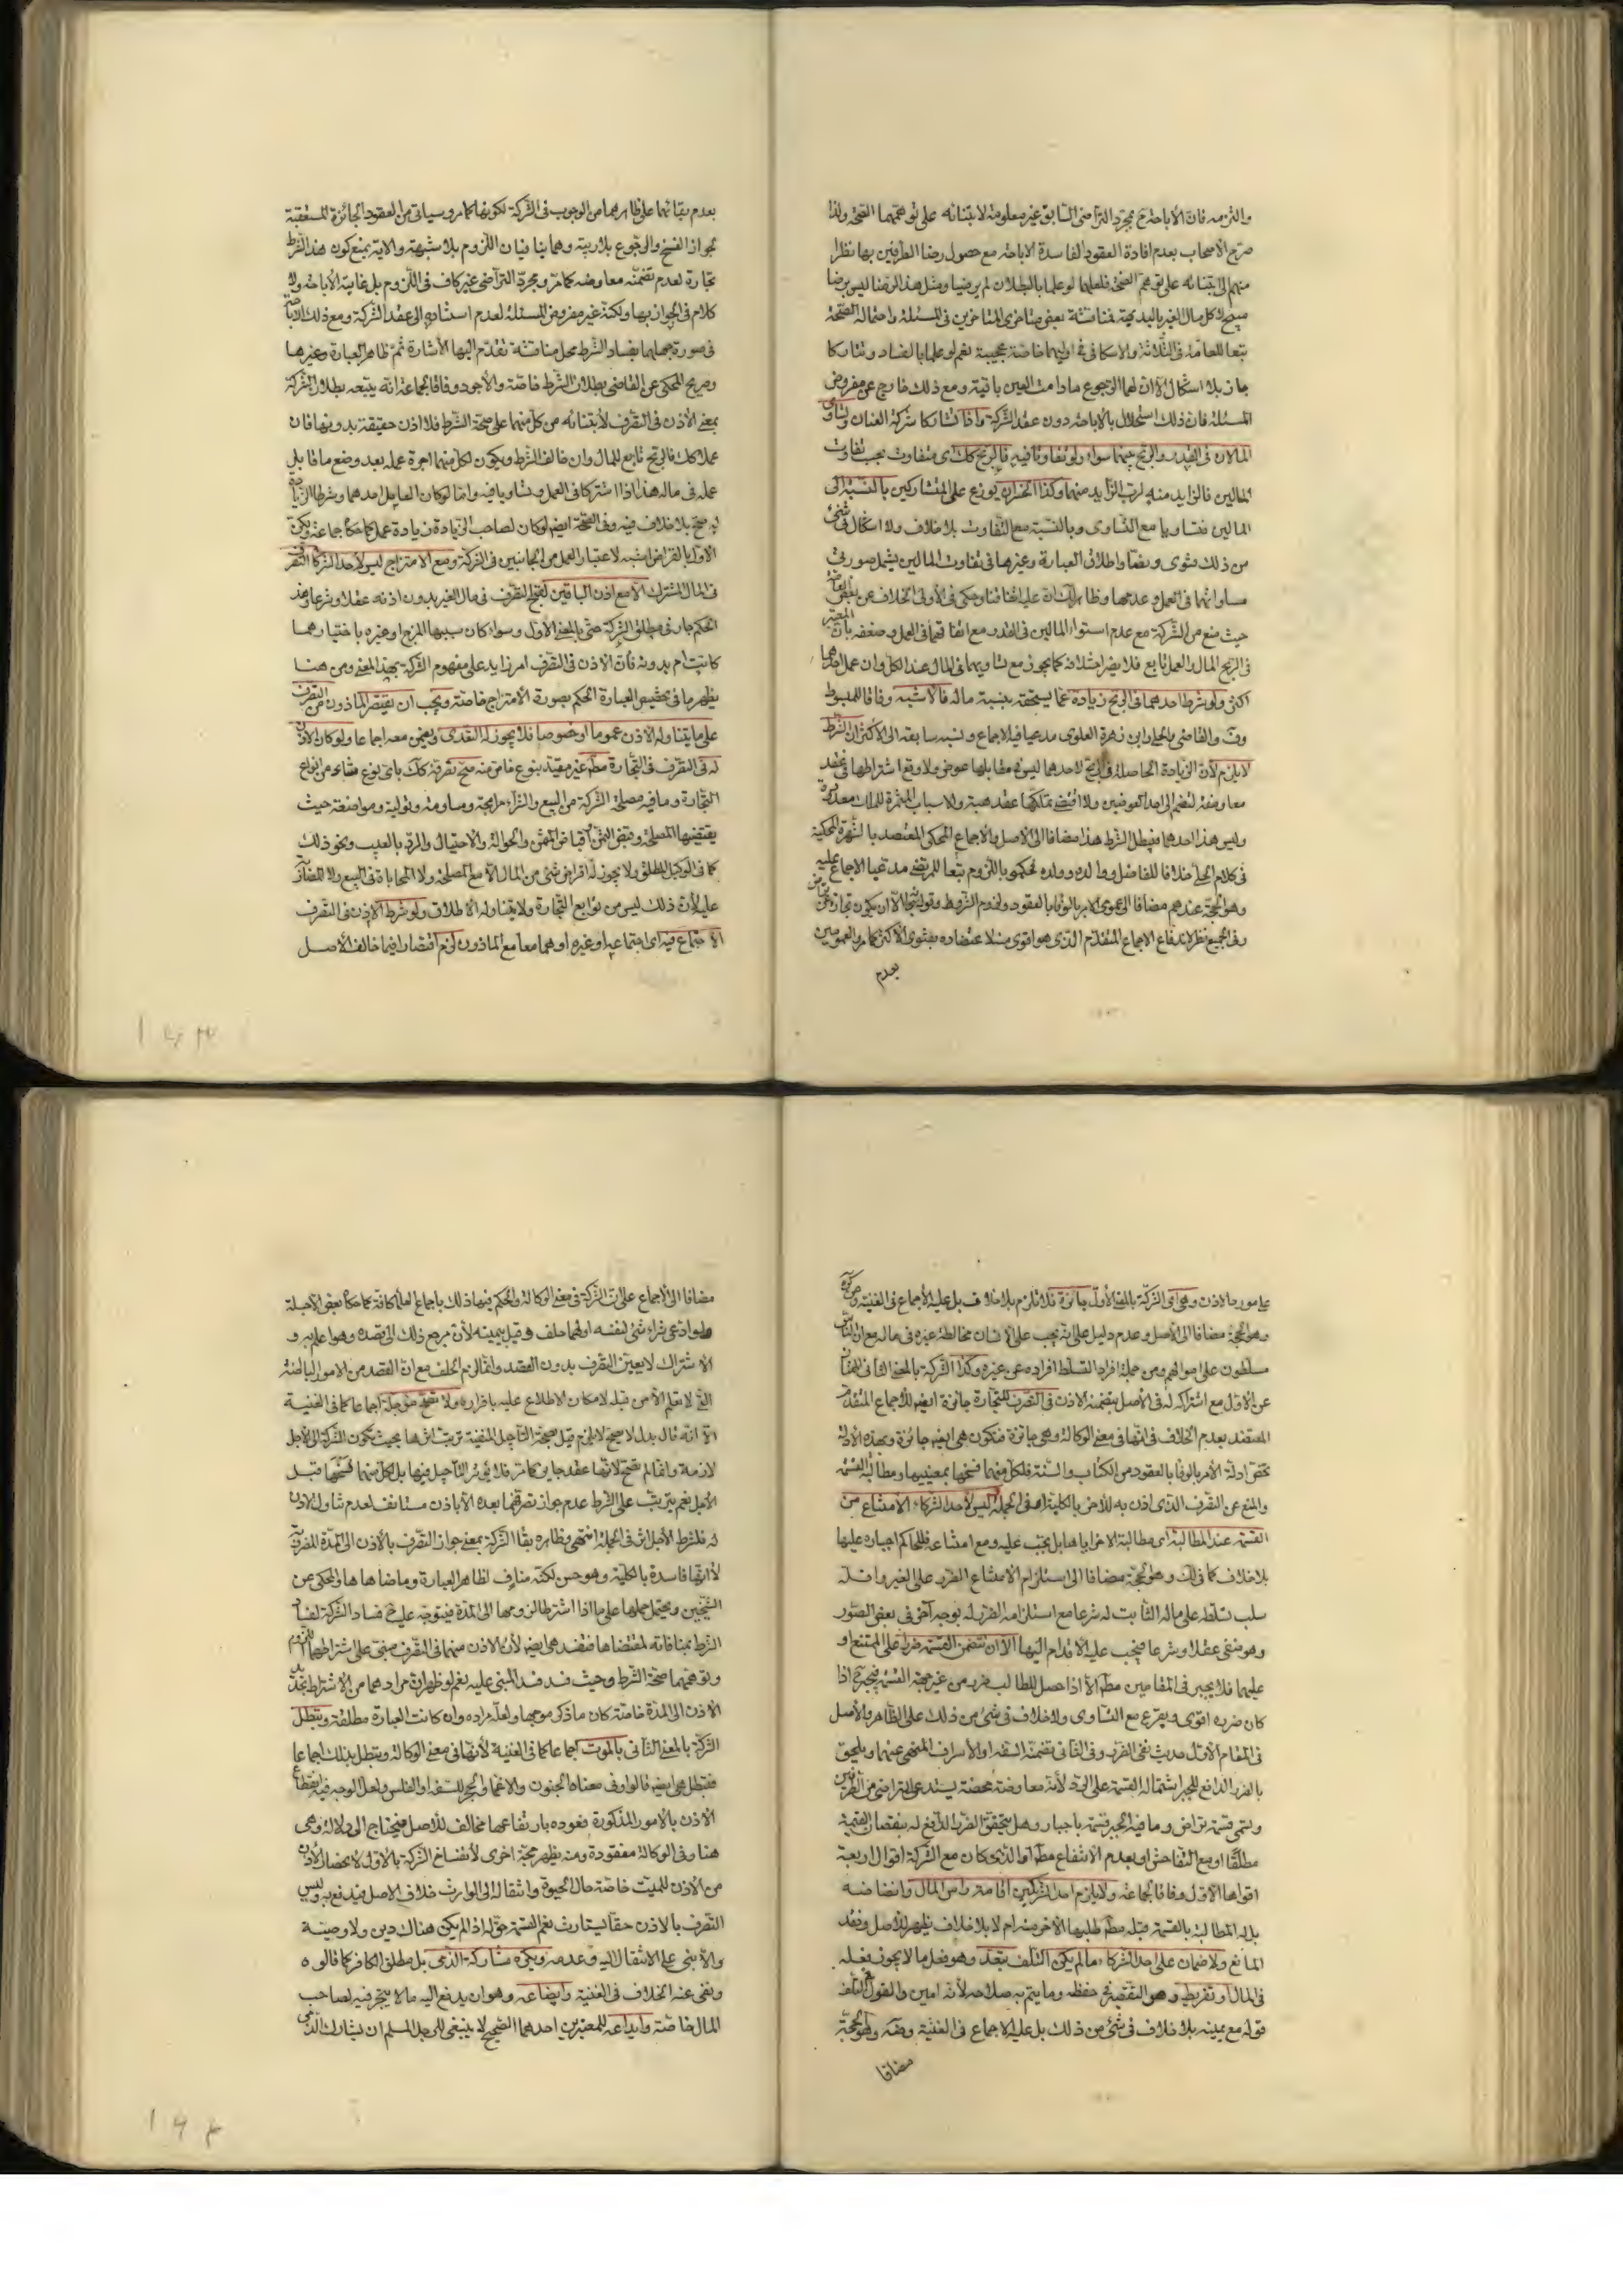 والتزمه فان الاباحة بمجرد التراضى السابق غير معلومة لابتنائه على توهمهما الصحة ولذا
صرح الاصحاب بعدم افادة العقود الفاسدة الاباحة مع حصول رضا الطرفين بها نظرا
منهم الى ابتنائه على توهم الصحة فلعلهما لو علما بالبطلان لم يرضيا ومثل هذا الرضا ليس برضا
مبيح لاكل مال الغير بالبديهة فمناقشة بعض متاخرى المتاخرين فى المسئلة واحتماله الصحة
تبعا للعلامة فى الثلاثة والاسكافى فى اوليهما خاصة عجيبة نعم لو علما بالفساد وتشاركا
جاز بلا اشكال الا ان لهما الرجوع مادامت العين باقية ومع ذلك خارج عن مفروض
المسئلة فان ذلك استحلال بالاباحة دون عقد الشركة واذا تشاركا شركة العنان وتساوى
المالان فى القدر والربح بينهما سواء ولو تفاوتا فيه فالربح كك اى متفاوت بحسب تفاوت
المالين فالزايد منه لرب الزايد منهما وكذا الخسران يوزع على المتشاركين بالنسبة الى
المالين فمتساويا مع التساوى وبالنسبة مع التفاوت بلا خلاف ولا اشكال فى شئ
من ذلك فتوى ونصا واطلاق العبارة وغيرها فى تفاوت المالين يشمل صورتى
مساواتهما فى العمل وعدمها وظاهرك ان عليه اتفاقنا وحكى فى الاولى الخلاف عن بعض العامة
حيث منع من الشركة مع عدم استواء المالين فى القدر مع اتفاقهما فى العمل وضعفه بان المعتبر
فى الربح المال والعمل تابع فلا يضر اختلافه كما يجوز مع تساويهما فى المال عند الكل وان عمل احدهما
اكثر ولو شرط احدهما فى الربح زيادة عما يستحقه بنسبة ماله فالاشبه وفاقا للمبسوط
وف والقاضى والحلى وابن زهرة العلوى مدعيا فيه الاجماع ونسبه سابقه الى الاكثر ان الشرط
لا يلزم لان الزيادة الحاصلة فى الربح لاحدهما ليس فى مقابلها عوض ولا وقع اشتراطها فى عقد
معاوضة لتضم الى احد العوضين ولا اقتضى تملكها عقد هبة والاسباب المثمرة للملك معدودة
وليس هذا احدها فيبطل الشرط هذا مضافا الى الاصل والاجماع المحكى المعتضد بالشهرة المحكية
فى كلام الحلى خلافا للفاضل ووالده وولده فحكموا باللزوم تبعا للمرتضى مدعيا الاجماع عليه
وهو الحجة عندهم مضافا الى عموم الامر بالوفاء بالعقود ولزوم الشروط وقوله تعالى الا ان يكون تجارة عن تراض
وفى الجميع نظر لاندفاع الاجماع المتقدم الذى هو اقوى منه لاعتضاده بفتوى الاكثر كما مر والعمومين
بعدم
بعدم بقائهما على ظاهرهما من الوجوب فى الشركة لكونها كما مر وسياتى من العقود الجائزة المستعقبة
لجواز الفسخ والرجوع بلا ريبة وهما ينافيان اللزوم بلا شبهة والاية بمنع كون هذا الشرط
تجارة لعدم تضمنه معاوضة كما مر ومجرد التراضى غير كاف فى اللزوم بل غايته الاباحة ولا
كلام فى الجواز بها ولكنه غير مفروض المسئلة لعدم استناده الى عقد الشركة ومع ذلك الاباحة
فى صورة جهلهما بفساد الشرط محل مناقشة تقدم اليها الاشارة ثم ظاهر العبارة وغيرها
وصريح المحكى عن القاضى بطلان الشرط خاصة والاجود وفاقا لجماعة انه يتبعه بطلان الشركة
بمعنى الاذن فى التصرف لابتنائه من كل منهما على صحة الشرط فلا اذن حقيقة بدونها فان
عملا كك فالربح تابع للمال وان خالف الشرط ويكون لكل منهما اجرة عمله بعد وضع ما قابل
عمله فى ماله هذا اذا اشتركا فى العمل وتساويا فيه واما لو كان العامل احدهما وشرطا الزيادة
له صح بلا خلاف فيه وفى الصحة ايضا لو كان لصاحب الزيادة زيادة عمل كما حكاه جماعة ولكن
الاول بالقراض اشبه لاعتبار العمل من الجانبين فى الشركة ومع الامتزاج ليس لاحد الشركاء التصرف
فى المال المشترك الا مع اذن الباقين لقبح التصرف فى مال الغير بدون اذنه عقلا وشرعا وهذا
الحكم جار فى مطلق الشركة حتى بالمعنى الاول وسواء كان سببها المزج او غيره باختيارهما
كانت ام بدونه فان الاذن فى التصرف امر زايد على مفهوم الشركة بهذا المعنى ومن هنا
يظهر ما فى تخصيص العبارة الحكم بصورة الامتزاج خاصة ويجب ان يقتصر الماذون من التصرف
على ما يتناوله الاذن عموما او خصوصا فلا يجوز له التعدى ويضمن معه اجماعا ولو كان الاذن
له فى التصرف فى التجارة مطم غير مقيد بنوع خاص منه صح تصرفه كك باى نوع شاء من انواع
التجارة وما فيه مصلحة الشركة من البيع والشراء مرابحة ومساومة وتولية ومواضعة حيث
يقتضيها المصلحة وقبض الثمن واقباض المثمن والحوالة والاحتيال والرد بالعيب ونحو ذلك
كما فى الوكيل المطلق ولا يجوز له اقراض شئ من المال الا مع المصلحة ولا المحاباة فى البيع ولا المضاربة
عليه لان ذلك ليس من توابع التجارة ولا يتناوله الاطلاق ولو شرط الاذن فى التصرف
الاجتماع فيه اى اجتماعهما او غيره او هما معا مع الماذون لزم اقتصارا فيما خالف الاصل
على مورد الاذن وهى اى الشركة بالمعنى الاول جائزة فلا تلزم بلا خلاف بل عليه الاجماع فى الغنية وعن كره
وهو الحجة مضافا الى الاصل وعدم دليل على انه يجب على الانسان مخالطة غيره فى ماله مع ان الناس
مسلطون على اموالهم ومن جملة افراد التسلط افراده عن غيره وكذا الشركة بالمعنى الثانى
عن الاول مع اشتراكه له فى الاصل بتضمنه الاذن فى التصرف للتجارة جائزة ايضا للاجماع المتقدم
المعتضد بعدم الخلاف فى انها فى معنى الوكالة وهى جائزة فتكون هى ايضا جائزة وبهذه الادلة
تخص ادلة الامر بالوفاء بالعقود من الكتاب والسنة فلكل منهما فسخها بمعنييها ومطالبة القسمة
والمنع عن التصرف الذى اذن به للاخر بالكلية او فى الجملة وليس لاحد الشركاء الامتناع من
القسمة عند المطالبة اى مطالبة الاخر اياها بل يجب عليه ومع امتناعه فللحاكم اجباره عليها
بلا خلاف كما فى لك وهو الحجة مضافا الى استلزام الامتناع الضرر على الغير واقله
سلب تسلطه على ماله الثابت له شرعا مع استلزامه الضرر له بوجه اخر فى بعض الصور
وهو منفى عقلا وشرعا فيجب عليه الاقدام اليها الا ان تتضمن القسمة ضررا على الممتنع او
عليهما فلا يجبر فى المقامين مطم الا اذا حصل للطالب ضرر من غير جهة القسمة فيجبر ح اذا
كان ضرره اقوى ويقرع مع التساوى ولا خلاف فى شئ من ذلك على الظاهر والاصل
فى المقام الاول حديث نفى الضرر وفى الثانى تضمنه السفه او الاسراف المنهى عنهما ويلحق
بالضرر الدافع للجبر اشتمال القسمة على الرد لانه معاوضة محضة يستدعى التراضى من الطرفين
وتسمى قسمة تراض وما فيه الجبر قسمة باجبار وهل يتحقق الضرر الدافع له بنقصان القيمة
مطلقا او مع التفاحش او بعدم الانتفاع مطم او الذى كان مع الشركة اقوال اربعة
اقواها الاول وفاقا لجماعة ولا يلزم احد الشريكين اقامة راس المال وانضاضه
بل له المطالبة بالقسمة قبله مطم طلبها الاخر منه ام لا بلا خلاف يظهر للاصل وفقد
المانع ولا ضمان على احد الشركاء ما لم يكن التلف بتعد وهو فعل ما لا يجوز فعله
فى المال او تفريط وهو التقصير فى حفظه وما يتم به صلاحه لانه امين والقول فى التلف
قوله مع يمينه بلا خلاف فى شئ من ذلك بل عليه الاجماع فى الغنية وفقه وهو الحجة
مضافا
مضافا الى الاجماع على ان الشركة فى معنى الوكالة والحكم فيها ذلك باجماع العلماء كافة كما حكاه بعض الاجلة
ولو ادعى شراء شئ لنفسه او لهما حلف وقبل بيمينه لان مرجع ذلك الى قصده وهو اعلم به و
الاشتراك لا يعين التصرف بدون القصد وانما لزم الحلف مع ان القصد من الامور الباطنة
التى لا تعلم الا من قبله لامكان الاطلاع عليه باقراره ولا تصح مؤجلة اجماعا كما فى الغنية
الا انه قال بدل لا يصح لا يلزم قيل صحة التاجيل المنفية ترتب اثرها بحيث تكون الشركة الى الاجل
لازمة وانما لم تصح لانها عقد جايز كما مر فلا يؤثر التاجيل فيها بل لكل منهما فسخها قبل
الاجل نعم يترتب على الشرط عدم جواز تصرفهما بعده الا باذن مستانف لعدم تناول الاذن
له فلشرط الاجل اثر فى الجملة انتهى وظاهره بقاء الشركة بمعنى جواز التصرف بالاذن الى المدة المضروبة
لا انها فاسدة بالكلية وهو حسن لكنه مناف لظاهر العبارة وما ضاهاها والمحكى عن
الشيخين ويحتمل حملها على ما اذا اشترطا لزومها الى المدة فيتوجه عليه ح فساد الشركة لفساد
الشرط بمنافاته لمقتضاها فتفسد هى ايضا لان الاذن منهما فى التصرف مبنى على اشتراطهما اللزوم
وتوهمهما صحة الشرط وحيث فسد فسد المبنى عليه نعم لو ظهر ارادة مرادهما من الاشتراط تحديد
الاذن الى المدة خاصة كان ما ذكر موجها ولعله مراده وان كانت العبارة مطلقة وتبطل
الشركة بالمعنى الثانى بالموت اجماعا كما فى الغنية لانها فى معنى الوكالة وتبطل بذلك اجماعا
فتبطل هى ايضا قالوا وفى معناه الجنون والاغماء والحجر للسفه او الفلس ولعل الوجه فيه انقطاع
الاذن بالامور المذكورة فعوده بارتفاعها مخالف للاصل فيحتاج الى دلالة وهى
هنا وفى الوكالة مفقودة ومنه يظهر حجة اخرى لانفساخ الشركة بالاول لانحصار الاذن
من الاذن للميت خاصة حال الحيوة وانتقاله الى الوارث خلاف الاصل فيدفع به وليس
التصرف بالاذن حقا ليتارث نعم القسمة حق له اذا لم يكن هناك دين ولا وصية
والا بنى على الانتقال اليه وعدمه ويكره مشاركة الذمى بل مطلق الكافر كما قالوه
ونفى عنه الخلاف فى الغنية وابضاعه وهو ان يدفع اليه مالا يتجر فيه لصاحب
المال خاصة وايداعه للمعتبرين احدهما الصحيح لا ينبغى للرجل المسلم ان يشارك الذمى